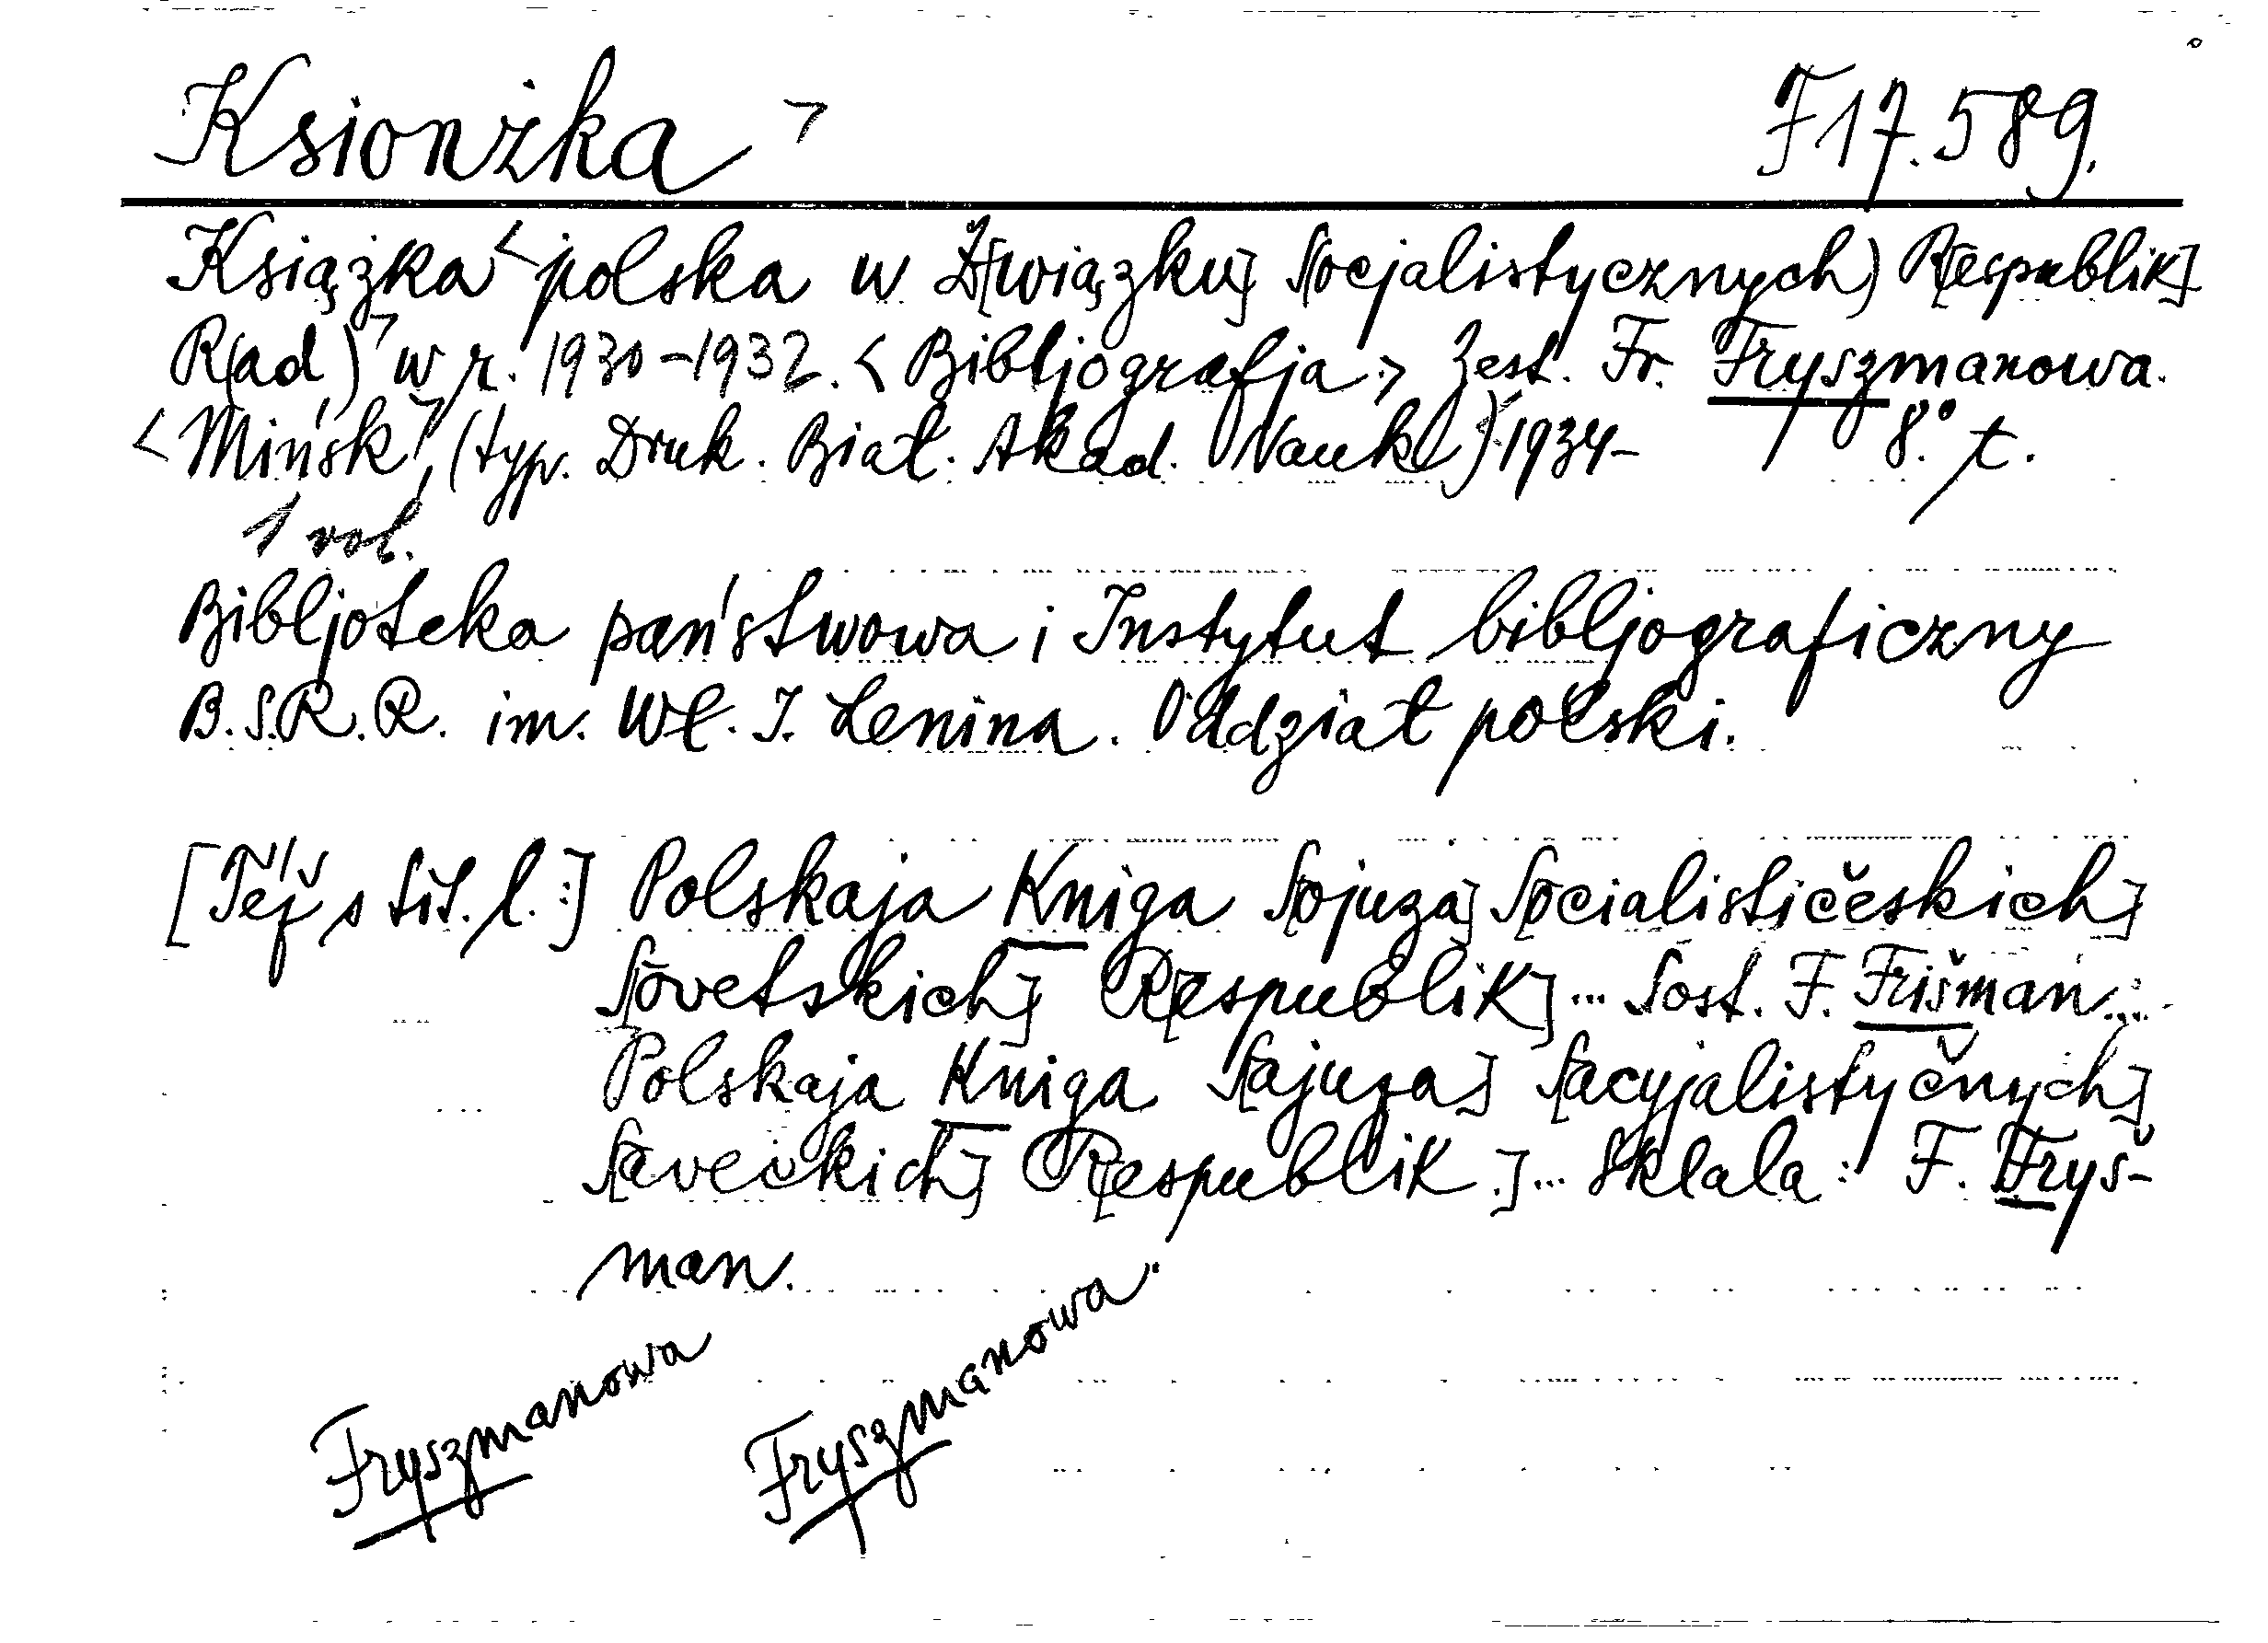 Ksionżka > F 17.589.
Książka < polska w Z[wiązku] S(ocjalistycznych) R[epublik]
R(ad) > w r. 1930-1932. < Bibljografja. > Zest. Fr. Fryszmanowa.
< Mińsk >, (typ. Druk. Biał. Akad. Nauk) 1934- 8.° t.
1 vol.
Bibljoteka państwowa i Instytut bibljograficzny
B.S.R.R. im. Wł. I. Lenina. Oddział polski.
[Též s tit. l.:] Polskaja Kniga S[ojuza] S[ocialističeskich]
S[ovetskich] R[espublik] ... Sost. F. Frišman...
Polskaja Kniga S[ajuza] S[acyjalistyčnych]
S[aveckich] R[espublik.] ... Sklala: F. Fryš-
man.
Fryszmanowa Fryszmanowa